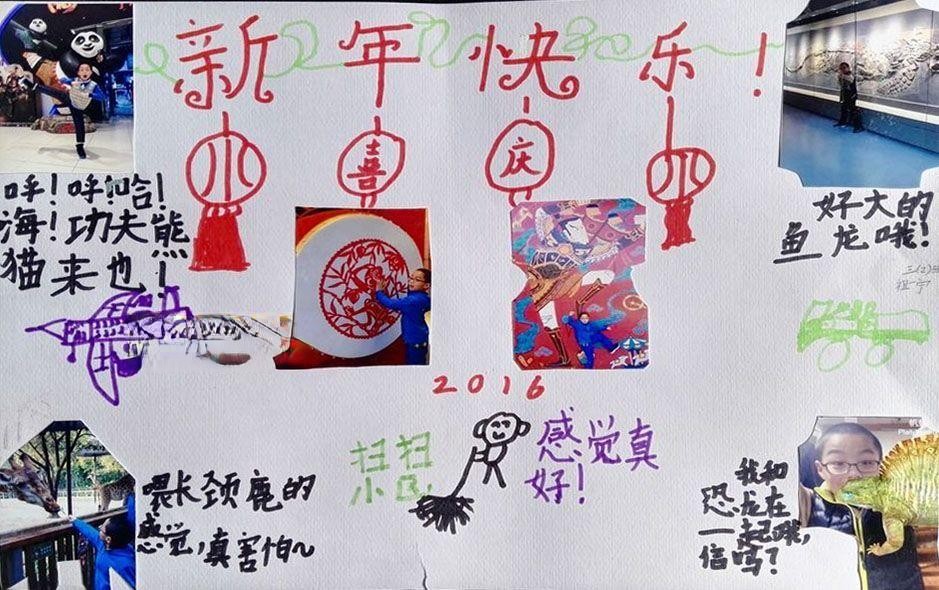 新年快乐！
小
喜
庆
呼！呼！哈！
海！功夫熊
猫来也！
好大的
鱼龙哦！
三(2)班
祖宁
2016
扫扫
小区，
感觉真
好！
喂长颈鹿的
感觉，真害怕~
我和
恐龙在
一起哦，
信吗？